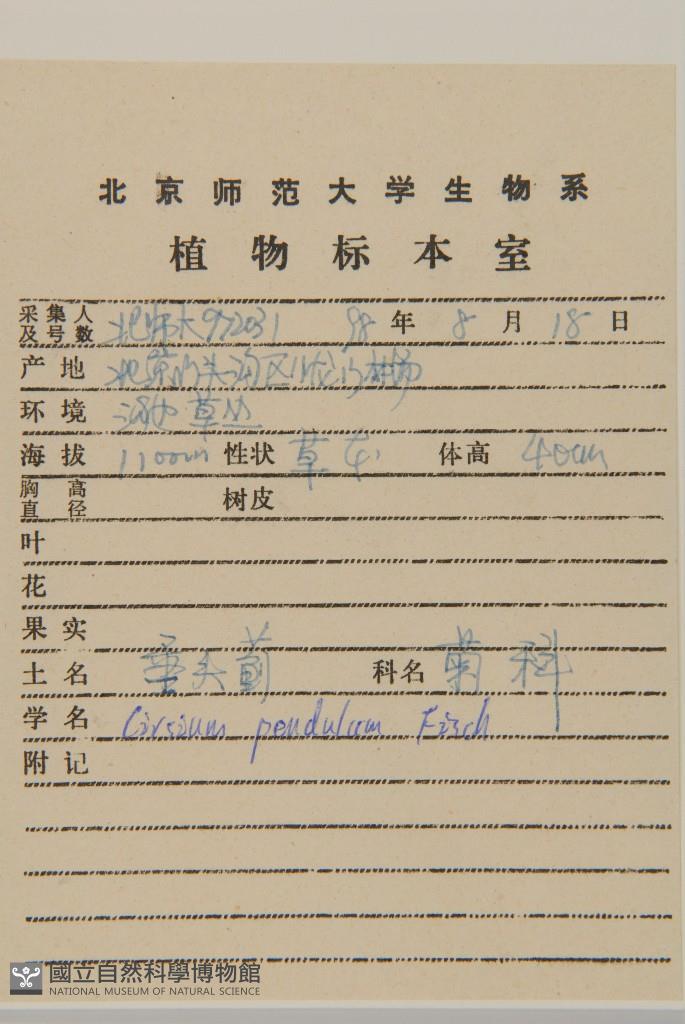 北京师范大学生物系
植物标本室
采集人及号数 北师大972031 98年8月18日
产地 北京门头沟区小龙门林场
环境 草丛
海拔 1100m 性状 草本 体高 40cm
胸高直径 树皮
叶
花
果实
土名 垂头蓟 科名 菊科
学名 Cirsium pendulum Fisch
附记
國立自然科學博物館
NATIONAL MUSEUM OF NATURAL SCIENCE